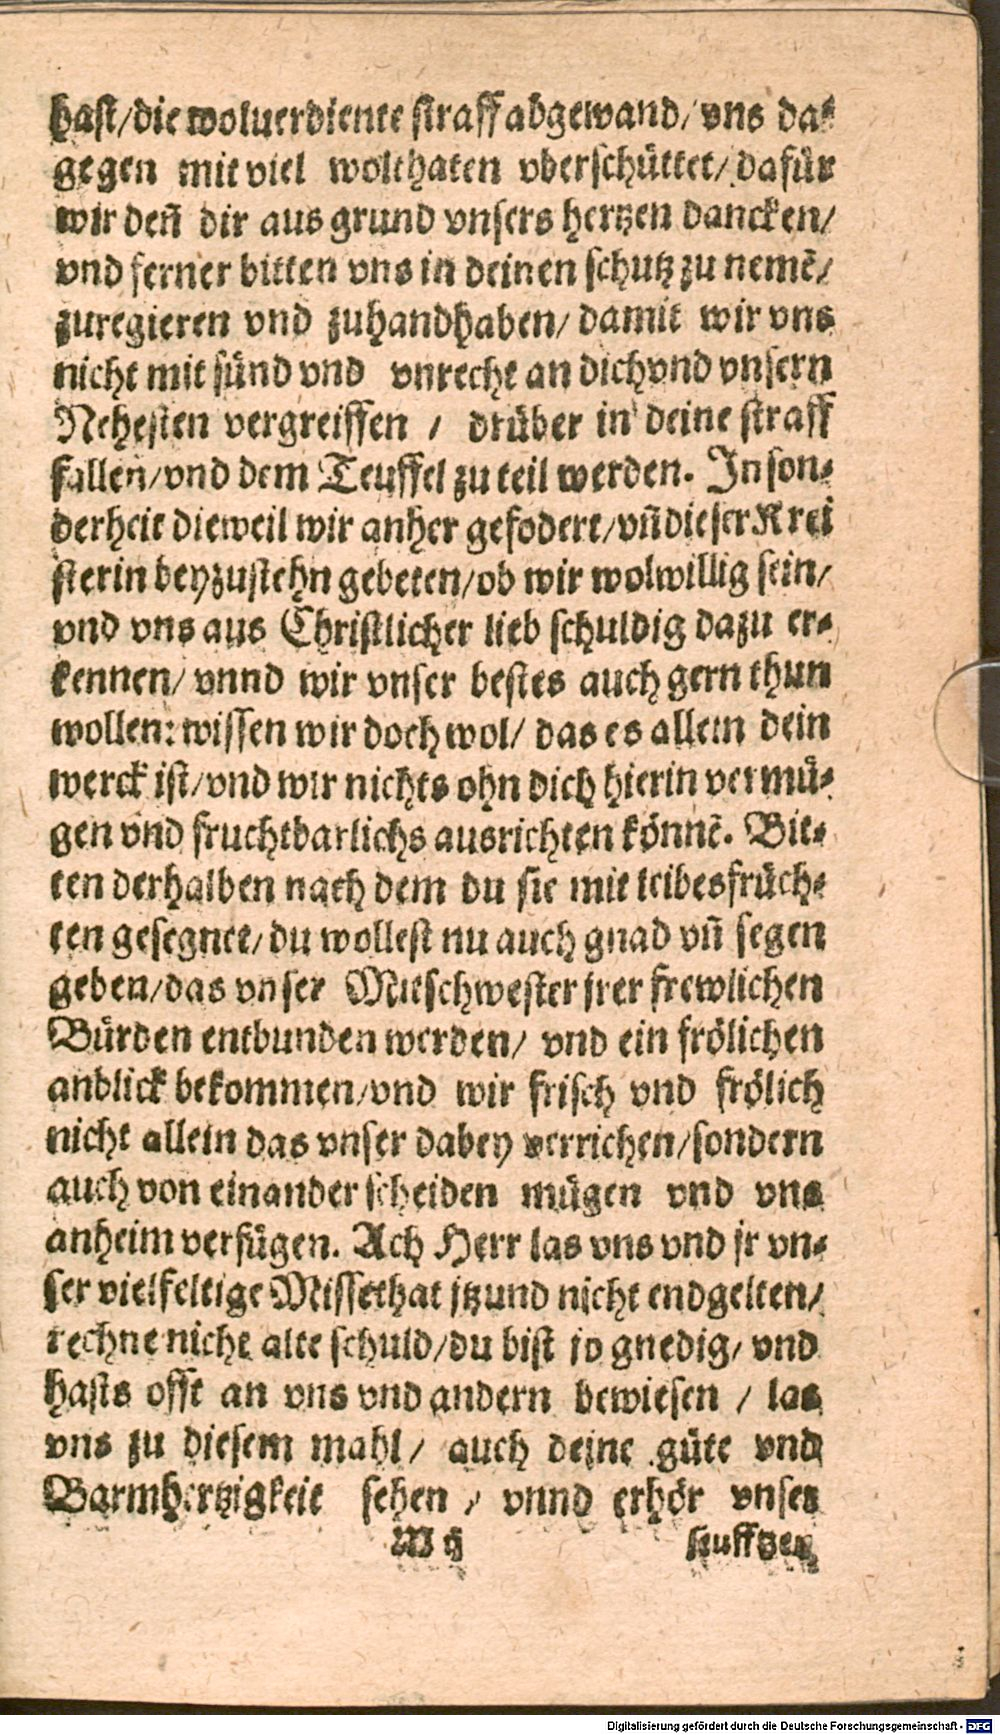 hast/die woluerdiente straff abgewand/ vns da⸗
gegen mit viel wolthaten vberschüttet/ dafür
wir deñ dir aus grund vnsers hertzen dancken/
vnd ferner bitten vns in deinen schutz zu nemẽ/
zuregieren vnd zuhandhaben/ damit wir vns
nicht mit sünd vnd vnrecht an dich vnd vnsern
Nehesten vergreiffen / drüber in deine straff
fallen/vnd dem Teuffel zu teil werden. In son⸗
derheit dieweil wir anher gefodert/vñ dieser Krei
sterin beyzustehn gebeten/ob wir wol willig sein/
vnd vns aus Christlicher lieb schuldig dazu er⸗
kennen/ vnnd wir vnser bestes auch gern thun
wollen: wissen wir doch wol/ das es allein dein
werck ist/vnd wir nichts ohn dich hierin vermü⸗
gen vnd fruchtbarlichs ausrichten könnẽ. Bit⸗
ten derhalben nach dem du sie mit leibesfrüch⸗
ten gesegnet/ du wollest nu auch gnad vñ segen
geben/das vnser Mitschwester jrer frewlichen
Bürden entbunden werden/ vnd ein frölichen
anblick bekommen/vnd wir frisch vnd frölich
nicht allein das vnser dabey verrichen/sondern
auch von einander scheiden mügen vnd vns
anheim verfügen. Ach Herr las vns vnd jr vn⸗
ser vielfeltige Missethat jtzund nicht endgelten/
rechne nicht alte schuld/du bist jo gnedig/ vnd
hasts offt an vns vnd andern bewiesen / las
vns zu diesem mahl/ auch deine güte vnd
Barmhertzigkeit sehen / vnnd erhör vnser
M ij seufftzen
Digitalisierung gefördert durch die Deutsche Forschungsgemeinschaft - DFG